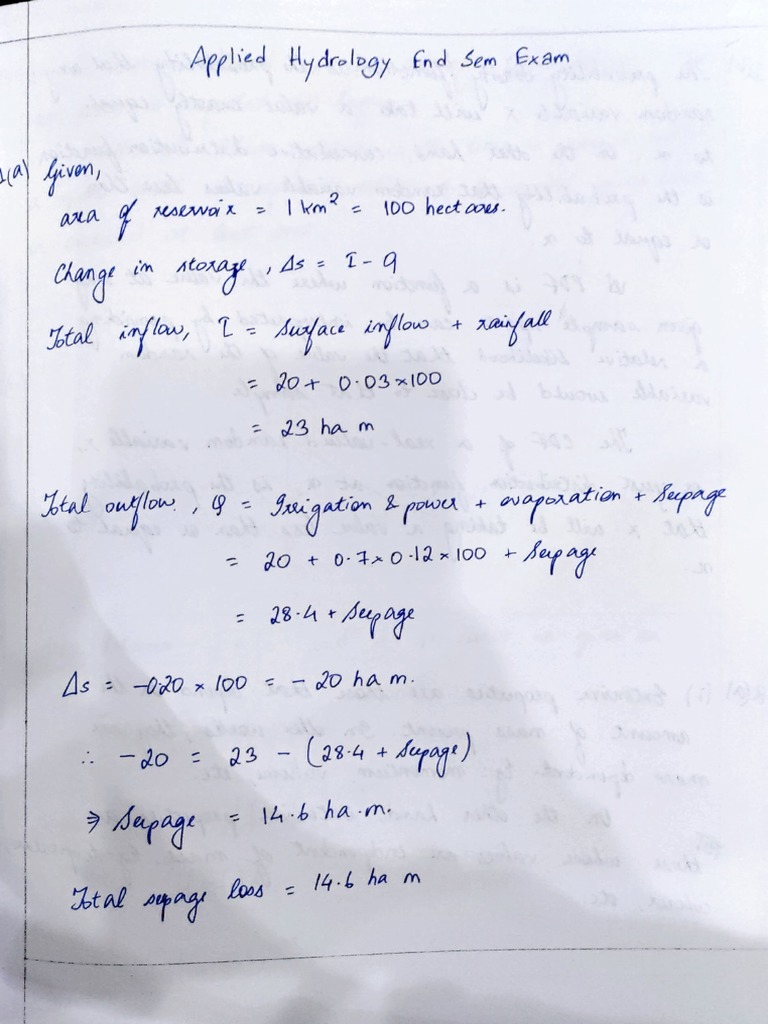 Applied Hydrology End Sem Exam
1(a) Given,
area of reservoir = 1 km² = 100 hectares.
Change in storage, Δs = I - Q
Total inflow, I = Surface inflow + rainfall
= 20 + 0.03 × 100
= 23 ha m
Total outflow, Q = Irrigation & power + evaporation + Seepage
= 20 + 0.7 × 0.12 × 100 + Seepage
= 28.4 + Seepage
Δs = -0.20 × 100 = - 20 ha m.
∴ -20 = 23 - (28.4 + Seepage)
⇒ Seepage = 14.6 ha.m.
Total sepage loss = 14.6 ha m